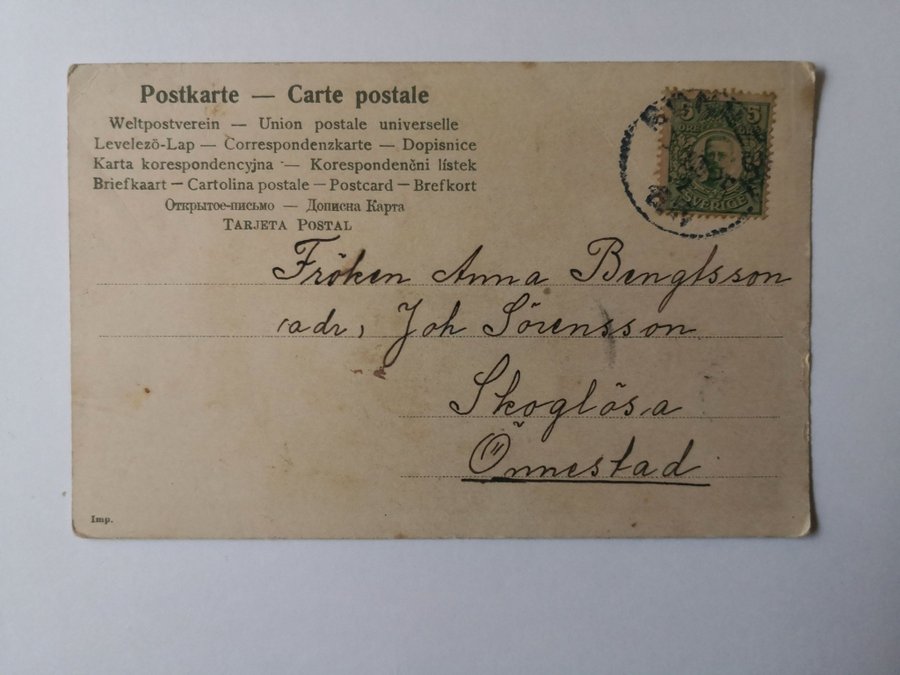 Postkarte — Carte postale
Weltpostverein — Union postale universelle
Levelező-Lap — Correspondenzkarte — Dopisnice
Karta korespondencyjna — Korespondenčni lístek
Briefkaart — Cartolina postale — Postcard — Brefkort
Открытое-письмо — Дописна Карта
TARJETA POSTAL
5 5
ÖRE
SVERIGE
Fröken Anna Bengtsson
adr, Joh Sörensson
Skoglösa
Önnestad
Imp.